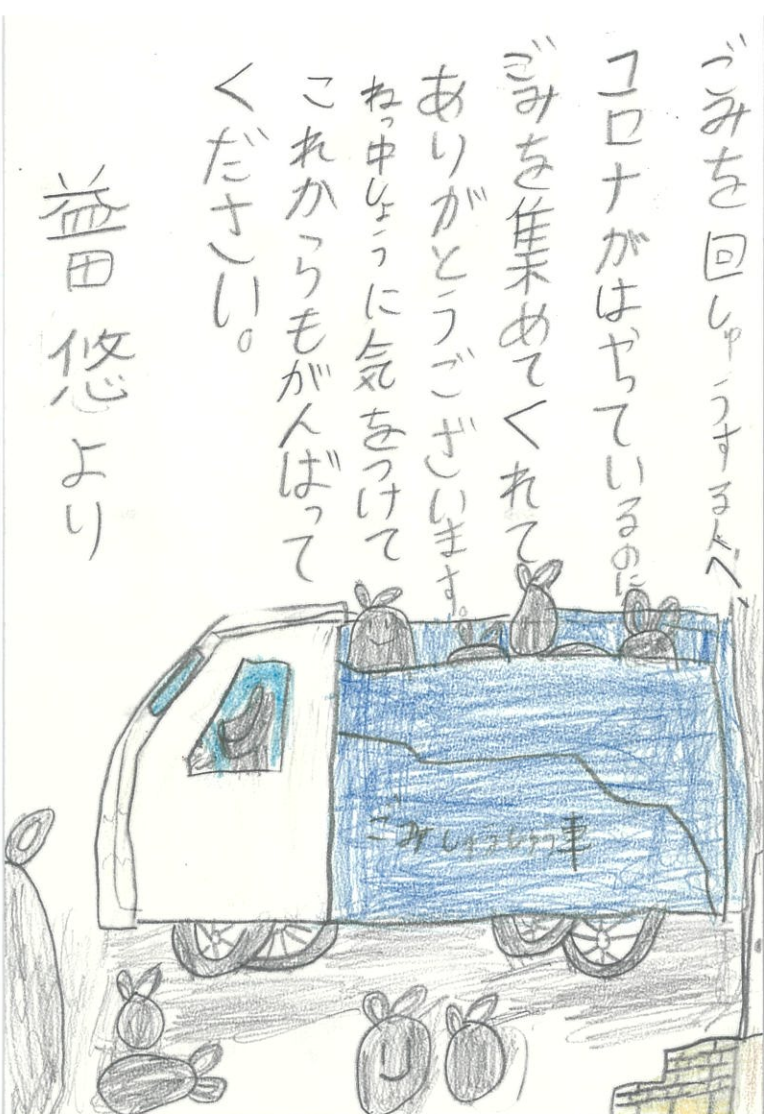 ごみを回しゅうする人へ、
コロナがはやっているのに
ごみを集めてくれて
ありがとうございます。
ねっ中しょうに気をつけて
これからもがんばって
ください。
益田 悠より
ごみしゅうしゅう車